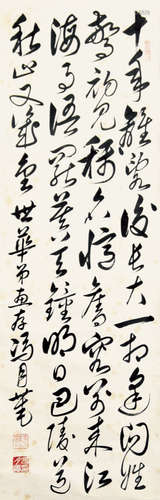 十年離乱後长大一相逢问姓
惊初见称名忆旧容别来沧
海事语罢暮天鐘明日巴陵道
秋山又几重 世華弟惠存 冯月庵